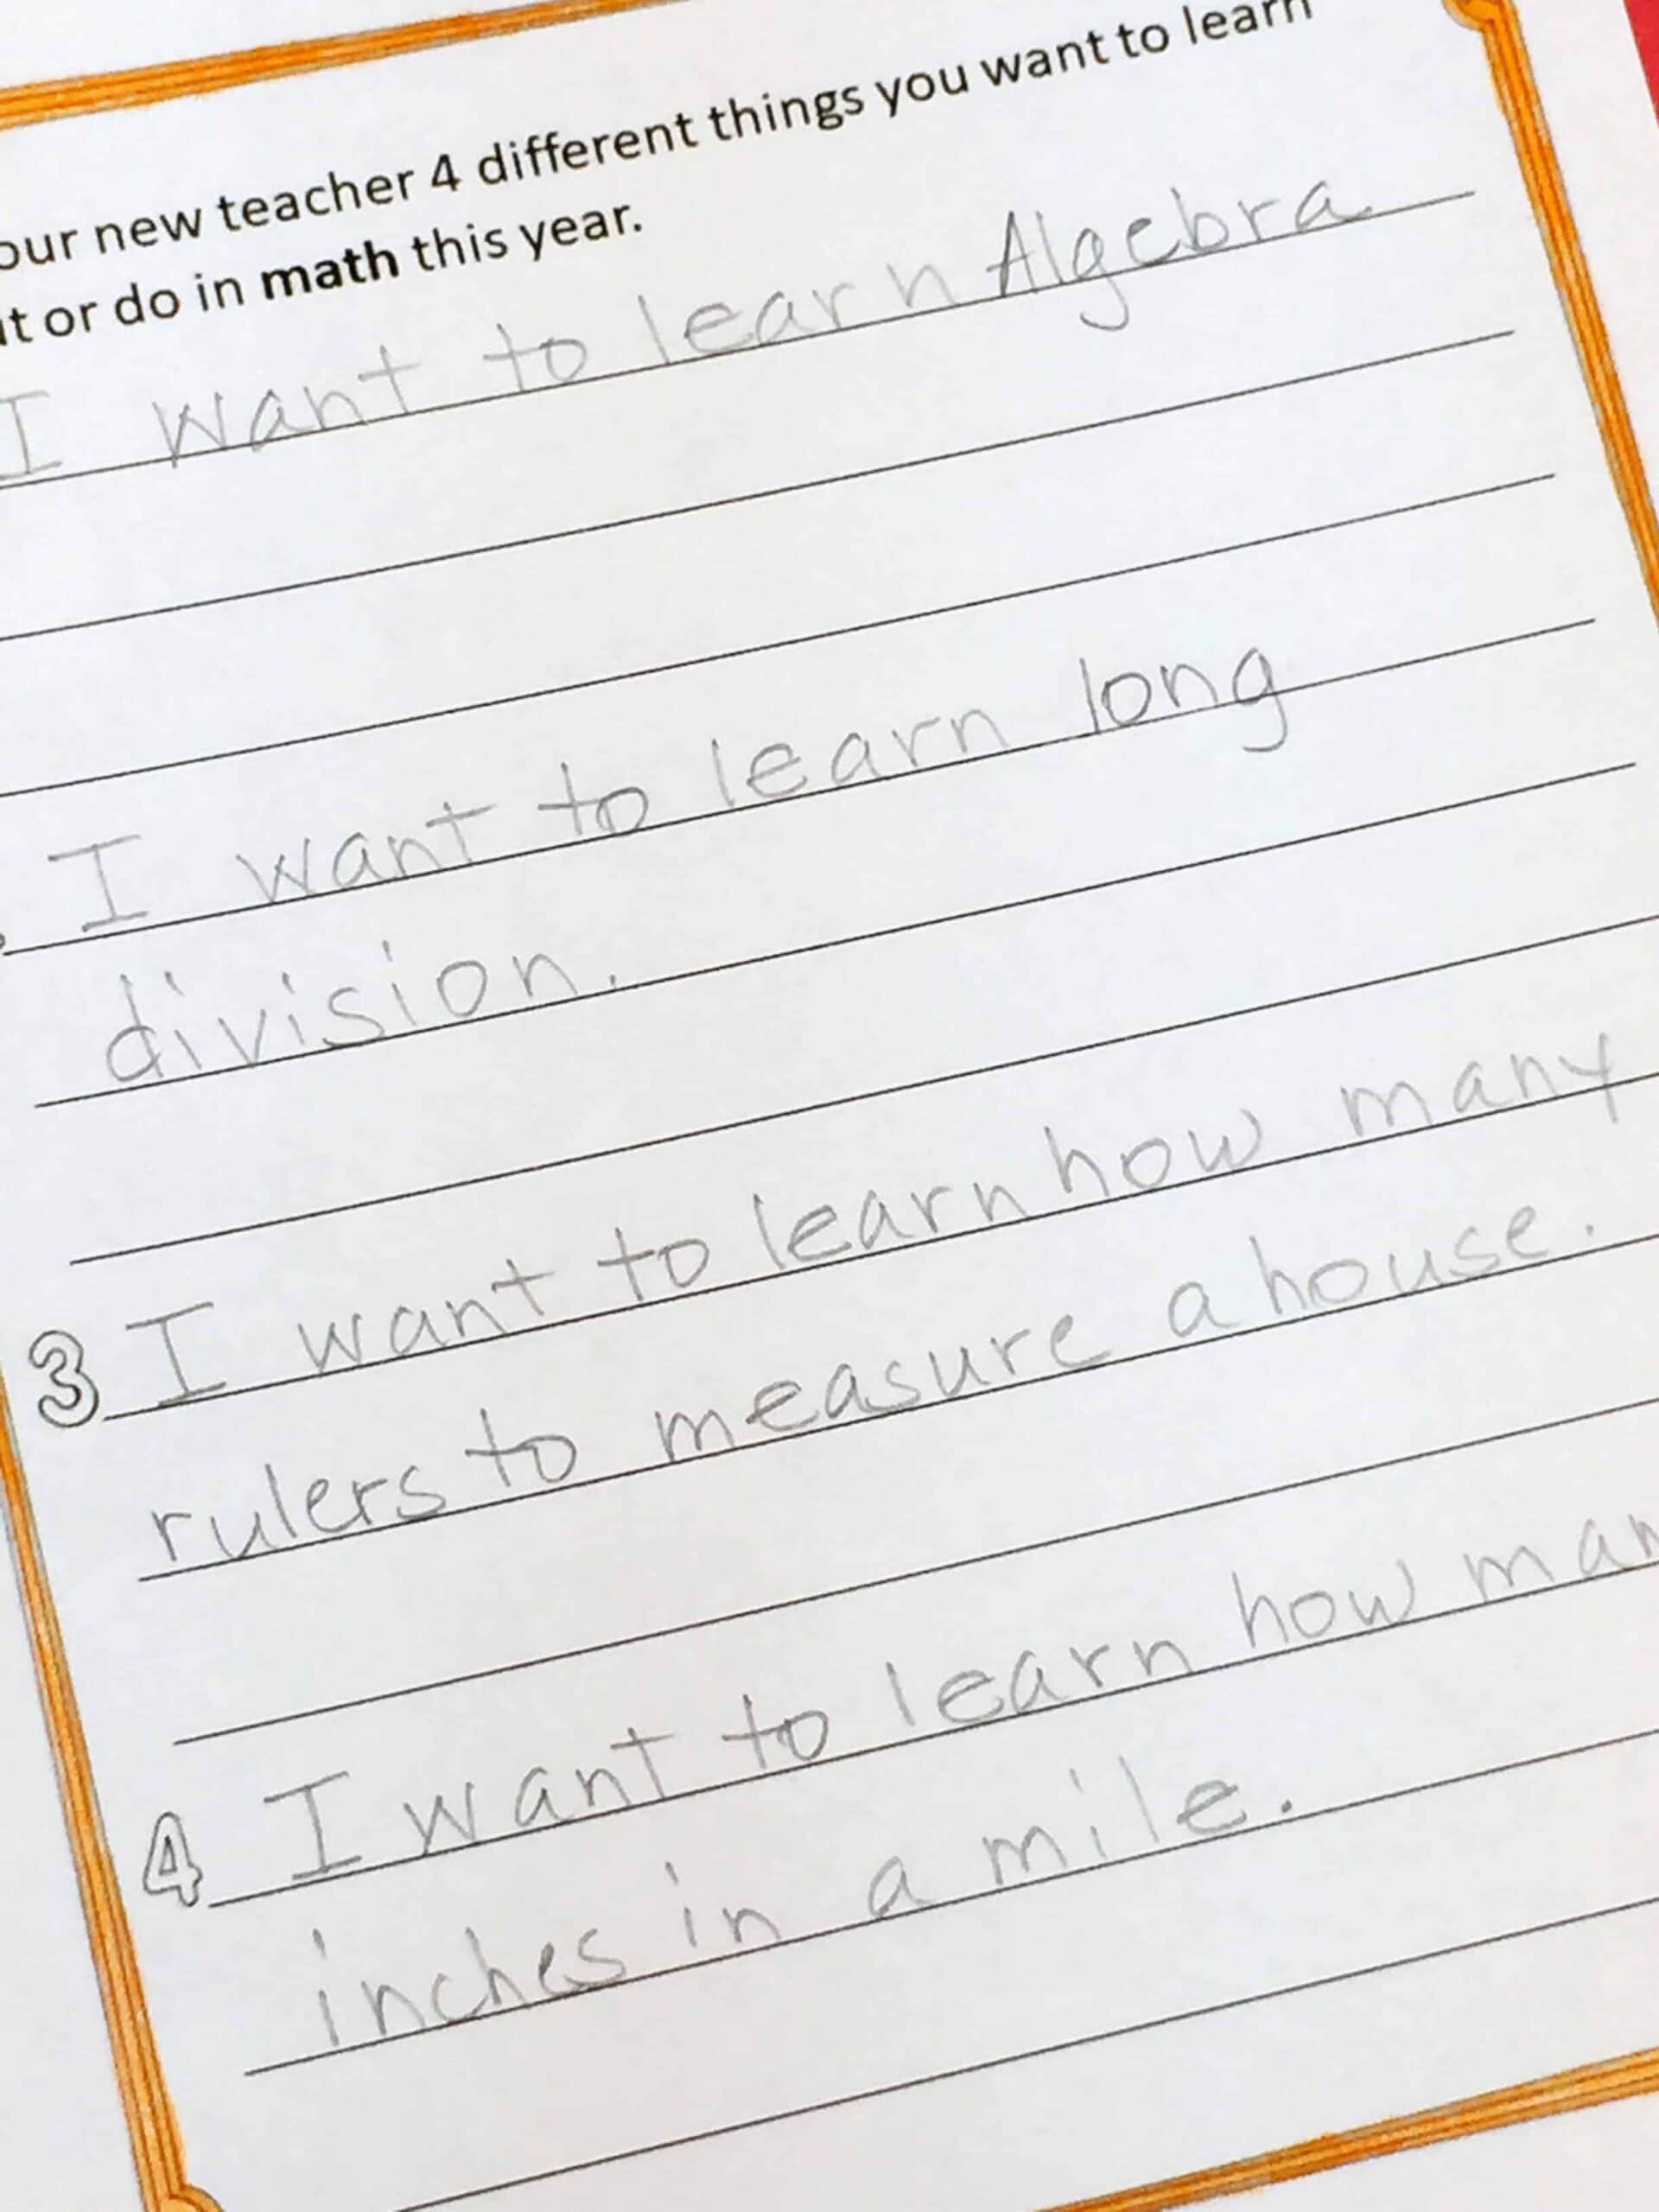 our new teacher 4 different things you want to learn
t or do in math this year.
I want to learn Algebra
I want to learn long
division.
3 I want to learn how many
rulers to measure a house.
4 I want to learn how man
inches in a mile.